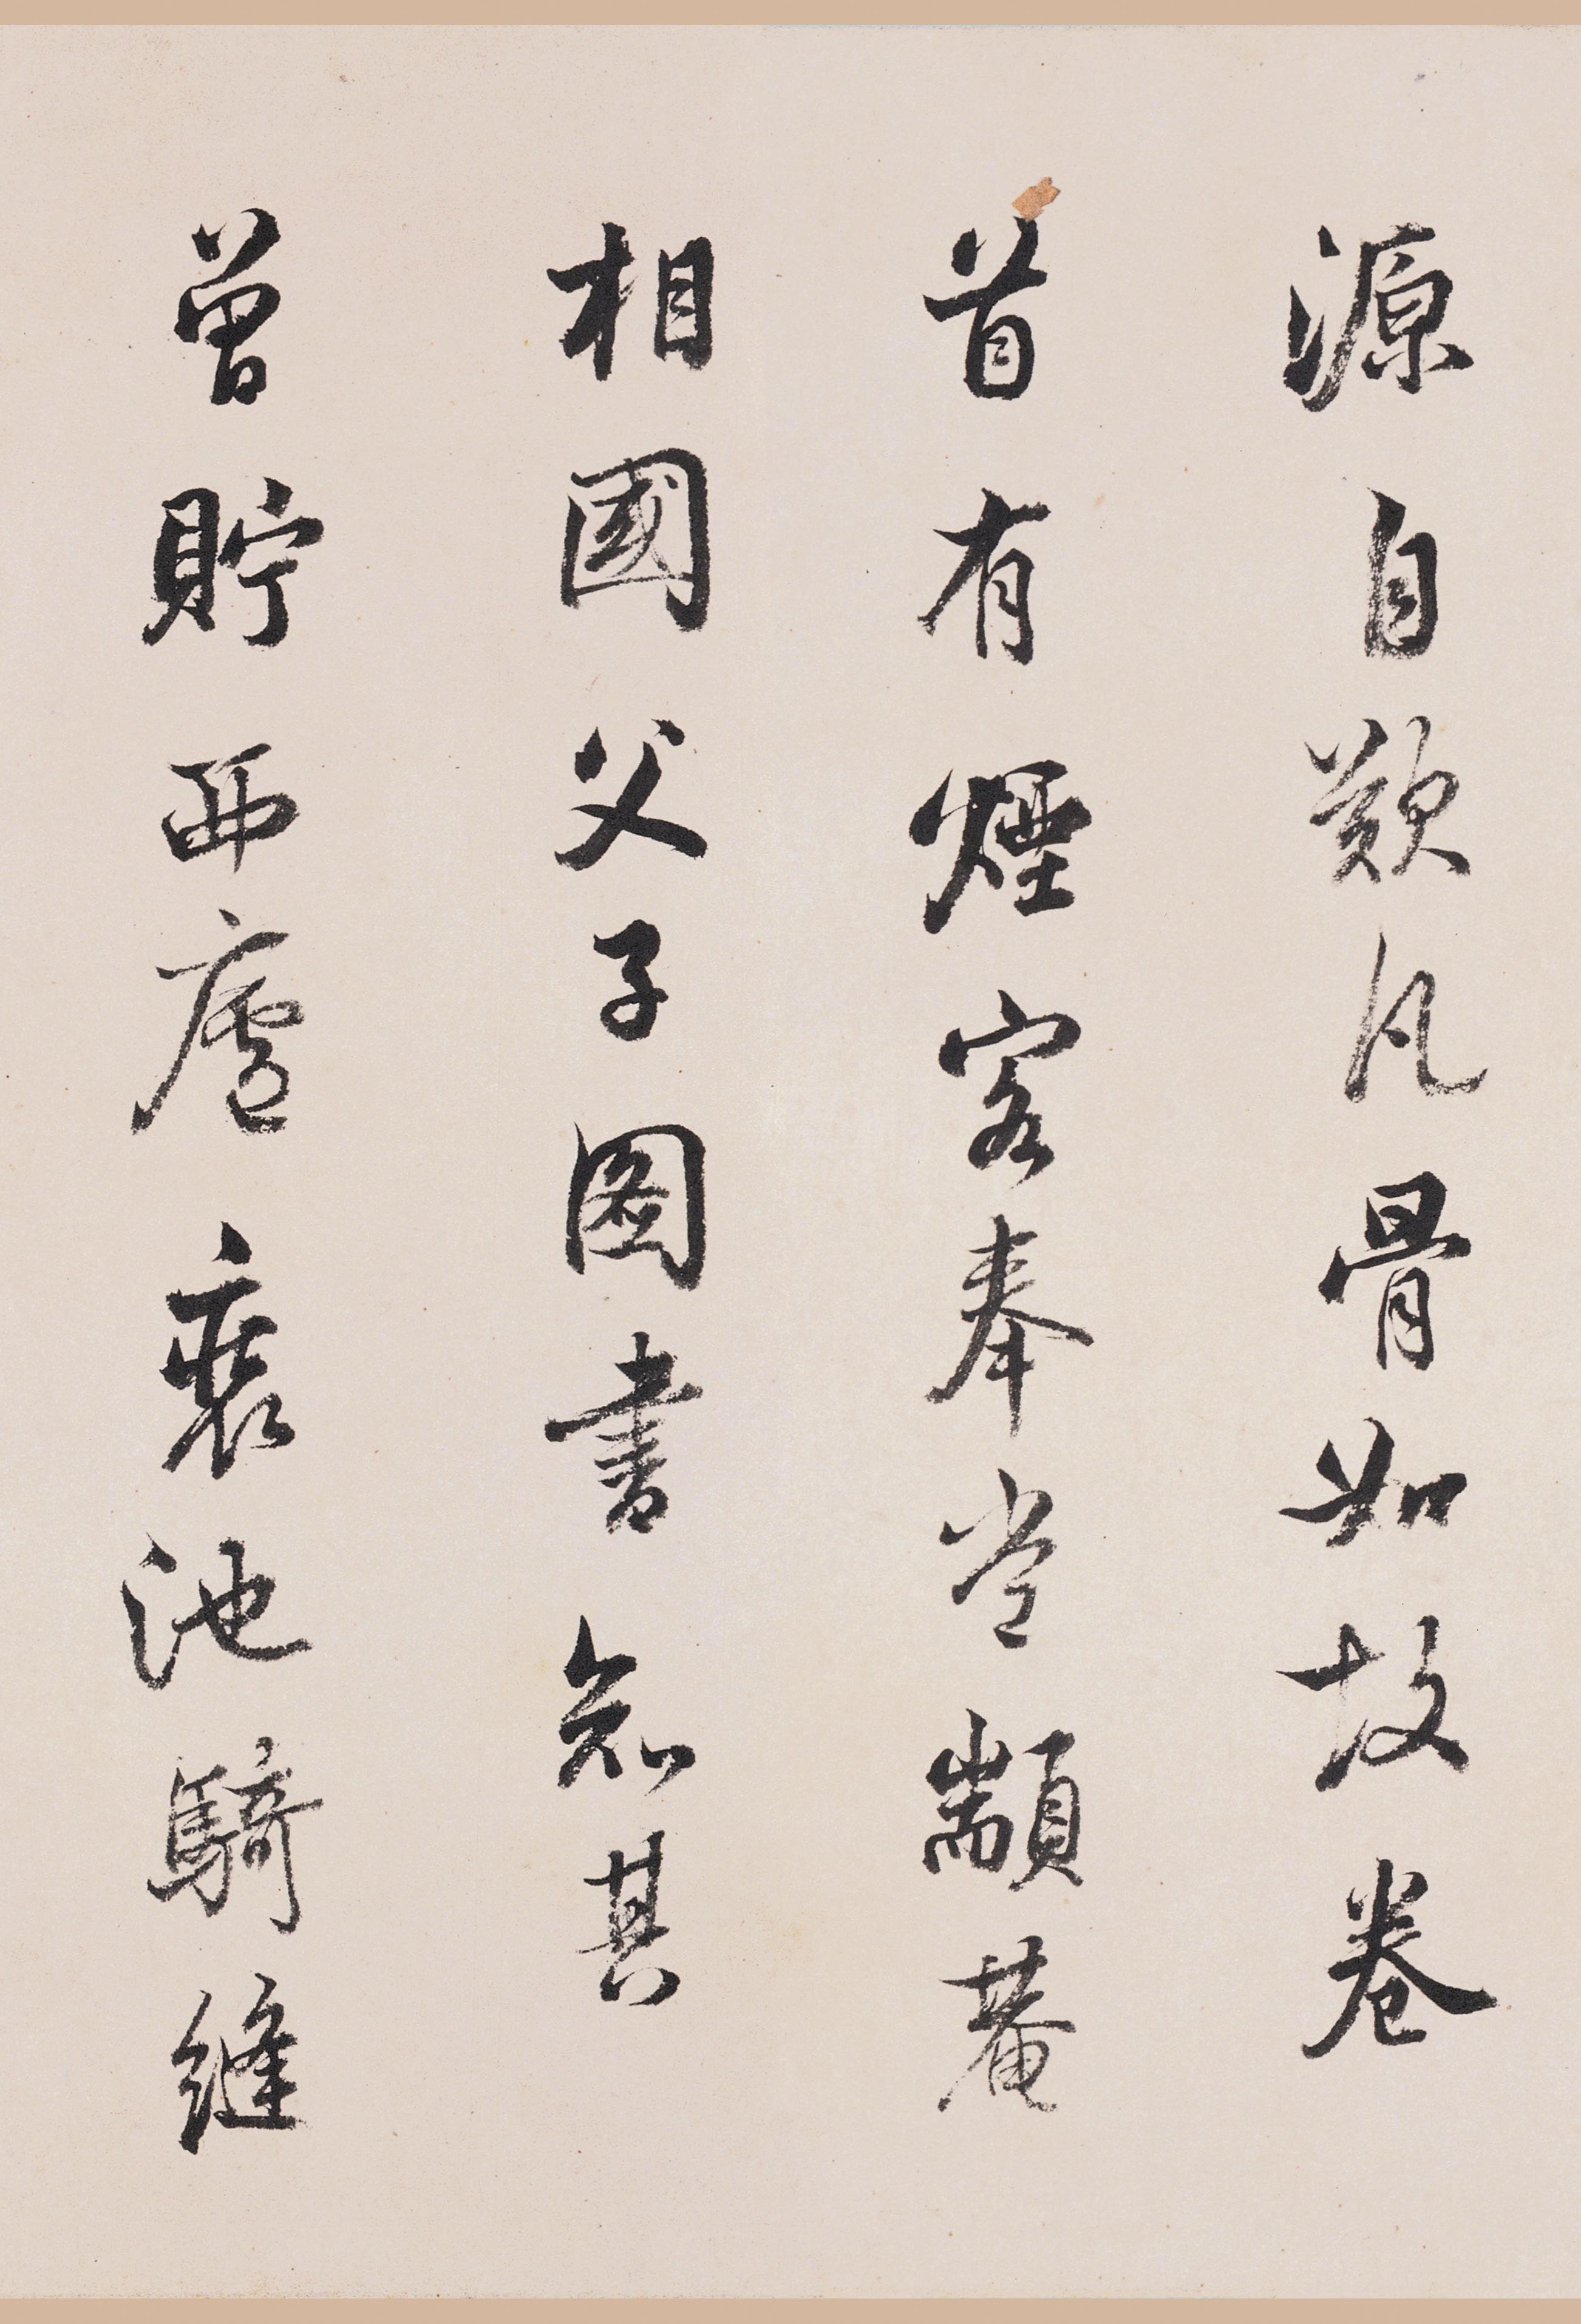 源自歎凡骨如故卷
首有煙客奉常顓菴
相國父子圖書知其
曾貯西廬裝池騎縫